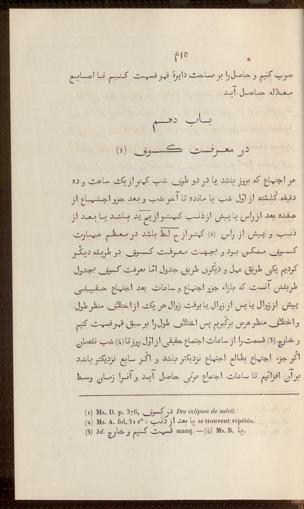 ٢١٥
ضرب کنیم و حاصل را بر مساحت دایرهٔ قمر قسمت کنیم تا اصابع
معدّله حاصل آید
بــاب دهــم
در معـرفت کســوف (1)
هر اجتماع که بروز باشد یا در دو طرف شب کمتر از یک ساعت و ده
دقیقه گذشته از اوّل شب یا مانده تا آخر شب و بعد جزو اجتماع از
عقده بعد از راس یا پیش از ذنب کمتر از یح ید باشد یا بعد از
ذنب و پیش از راس (2) کمتر از ح لط باشد در معظم عمارت
کسوف ممکن بود و بجهت معرفت کسوف دو طریقه دیگر
کردیم یکی طریق عمل و دیگری طریق جدول امّا معرفت کسوف بجدول
طریقش آنست که بازاء جزو اجتماع و ساعات بعد اجتماع حقیقی
پیش از زوال یا پس از زوال یا بوقت زوال هر یک از اختلاف منظر طول
و اختلاف منظر عرض برگیریم پس اختلاف طول را بر سبق قمر قسمت کنیم
و خارج (3) قسمت را از ساعات اجتماع حقیقی از اوّل روز تا (4) شب نقصان
اگر جزء اجتماع بطالع اجتماع نزدیکتر باشد و اگر سابع نزدیکتر باشد
بر آن افزائیم تا ساعات اجتماع مرئی حاصل آید و آنرا زمان وسط
(1) Ms. D. p. 376, در کسوف Des éclipses de soleil.
(2) Ms. A. fol. 31 r° : یا بعد از ذنب se trouvent répétés.
(3) Id. قسمت کنیم و خارج manq. — (4) Ms. B. یا.